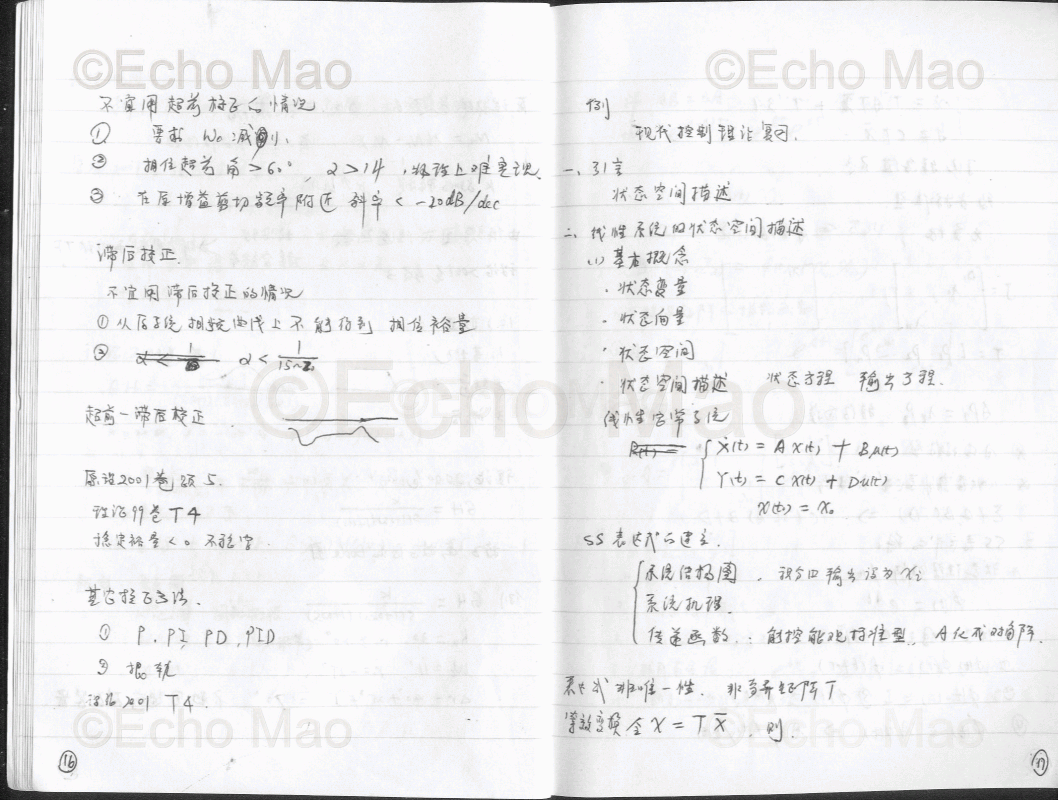 ©Echo Mao
不宜用超前校正的情况
① 要求 ω₀ 减小.
② 相位超前角 > 60°, α > 14, 线路上难实现.
③ 在原增益剪切频率附近 斜率 < -20dB/dec
滞后校正.
不宜用滞后校正的情况
① 从原系统相频曲线上不能得到 相位裕量
② α < 1/15~20
超前-滞后校正.
2001卷 题 5.
99卷 T4
稳定裕量 < 0 不稳定.
其它校正方法.
① P, PI, PD, PID
②
2001 T4
©Echo Mao
16
©Echo Mao
例
现代控制理论复习.
一. 引言
状态空间描述
二. 线性系统的状态空间描述
(1) 基本概念
· 状态变量
· 状态向量
· 状态空间
· 状态空间描述 状态方程 输出方程.
线性定常系统
ẋ(t) = A x(t) + B u(t)
Y(t) = C x(t) + D u(t)
x(t₀) = x₀
SS 表达式的建立.
系统结构图. 积分口输出设为 xᵢ
系统机理.
传递函数. 能控能观标准型. A化成对角阵.
表达式非唯一性. 非奇异矩阵 T
等效变换 令 X = T X̄ , 则.
©Echo Mao
17
©Echo Mao